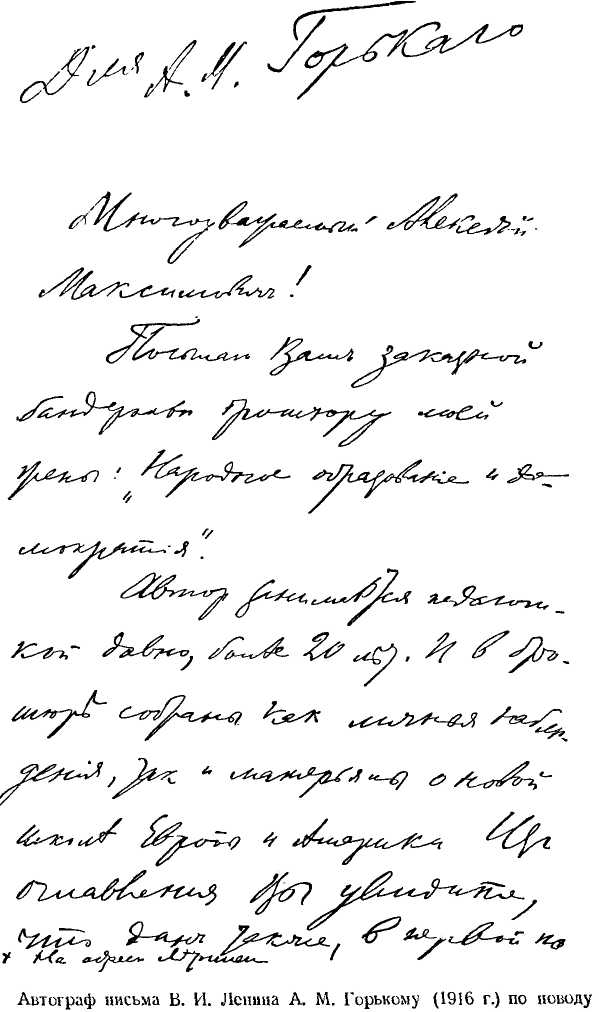 Для А. М. Горькаго
Многоуважаемый Алексѣй
Максимовичъ!
Посылаю Вамъ заказной
бандеролью брошюру моей
жены: „Народное образованіе и де-
мократія“.
Авторъ занимается педагоги-
кой давно, более 20 лѣт. И в бро-
шюрѣ собраны как личныя наблю-
денія, так и матерьялы о новой
школѣ Европы и Америки. Из
оглавления Вы увидите,
что дан также, в первой по
+ На адрес Лѣтописи
Автограф письма В. И. Ленина А. М. Горькому (1916 г.) по поводу